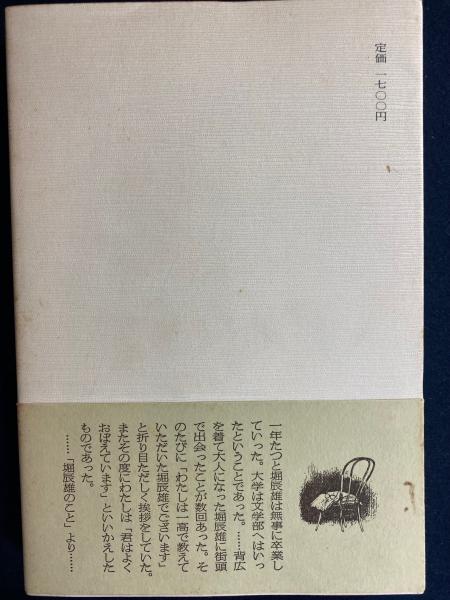 定価 一七〇〇円
一年たつと堀辰雄は無事に卒業し
ていった。大学は文学部へはいっ
たということであった。……背広
を着て大人になった堀辰雄に街頭
で出会ったことが数回あった。そ
のたびに「わたしは一高で教えて
いただいた堀辰雄でございます」
と折り目ただしく挨拶をしていた。
またその度にわたしは「君はよく
おぼえています」といいかえした
ものであった。
……「堀辰雄のこと」より……